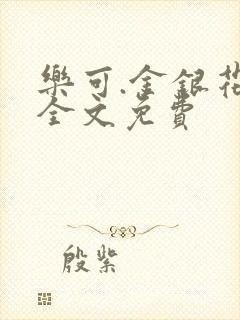 樂可.金銀花
全文免費
殷紫